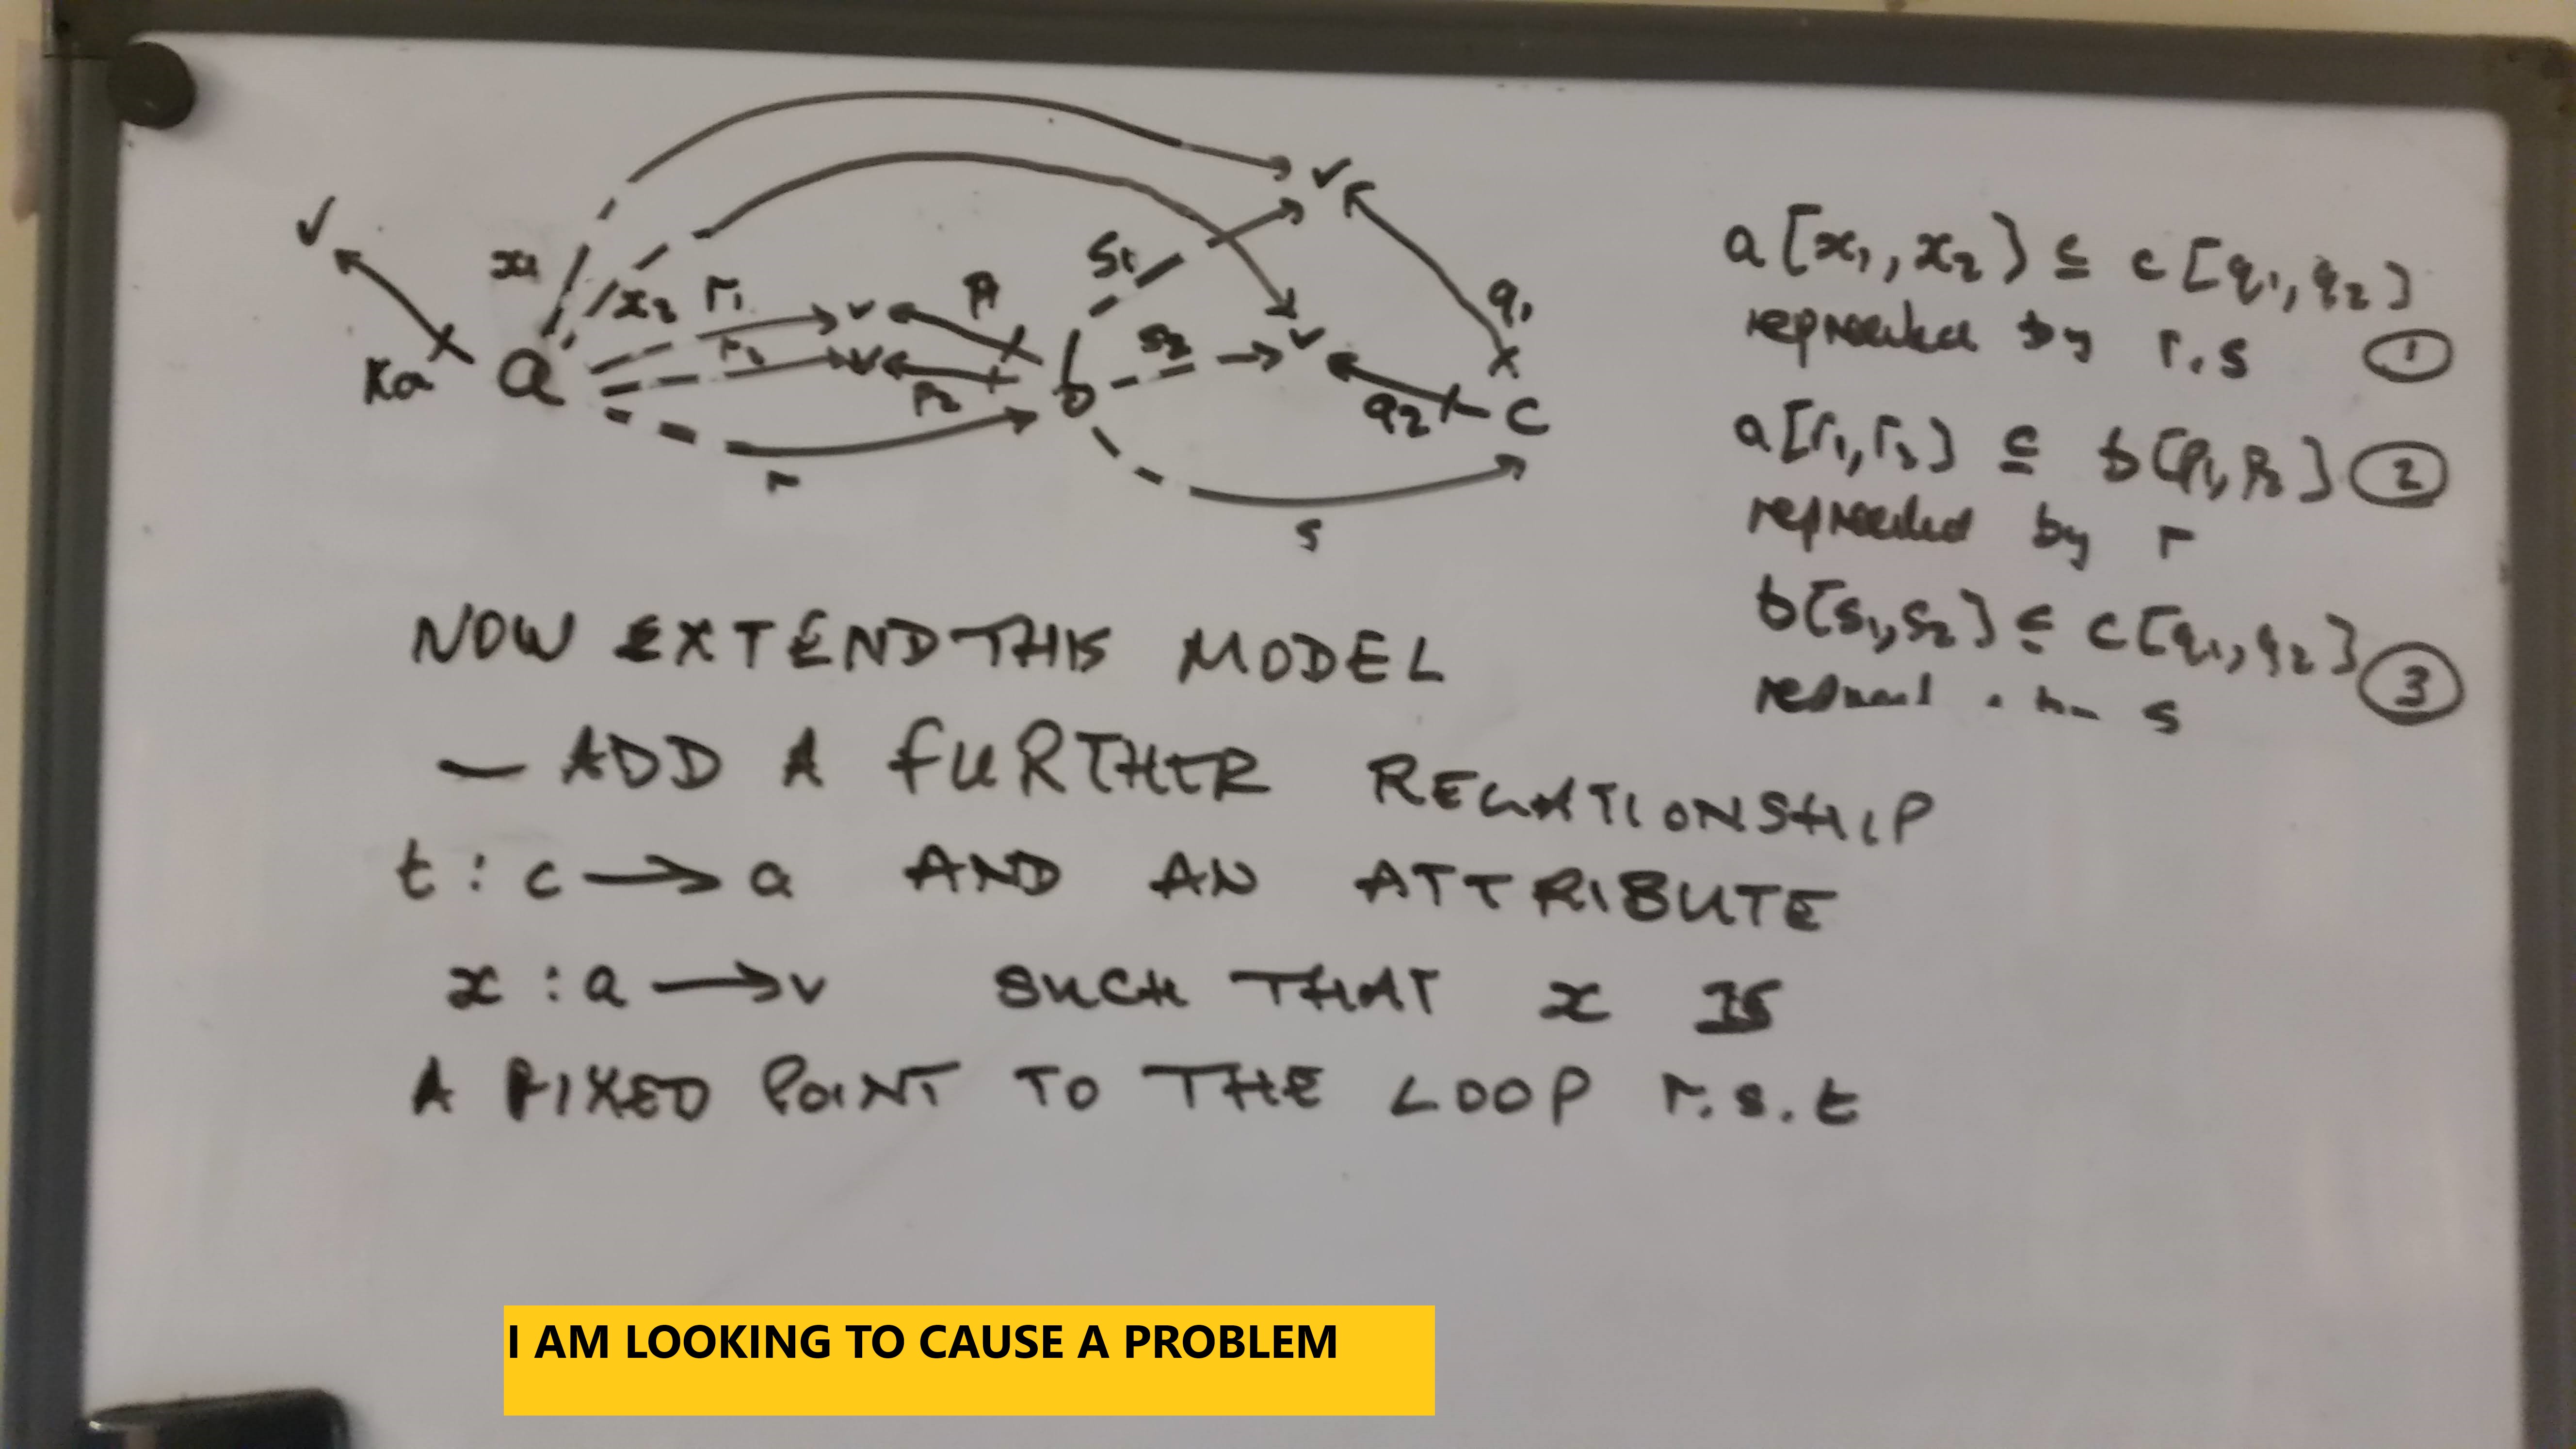 √
x₁
x₂
r₁
r₂
Ka
a
v
v
p₂
b
s₁
s₂
v
v
q₁
x
q₂
c
r
s
a[x₁, x₂] ⊆ c[q₁, q₂]
represented by r.s ①
a[r₁, r₂] ⊆ b[p₁, p₂] ②
represented by r
b[s₁, s₂] ⊆ c[q₁, q₂] ③
s
NOW EXTEND THIS MODEL
— ADD A FURTHER RELATIONSHIP
t : c ⟶ a AND AN ATTRIBUTE
x : a ⟶ v SUCH THAT x IS
A FIXED POINT TO THE LOOP r.s.t
I AM LOOKING TO CAUSE A PROBLEM